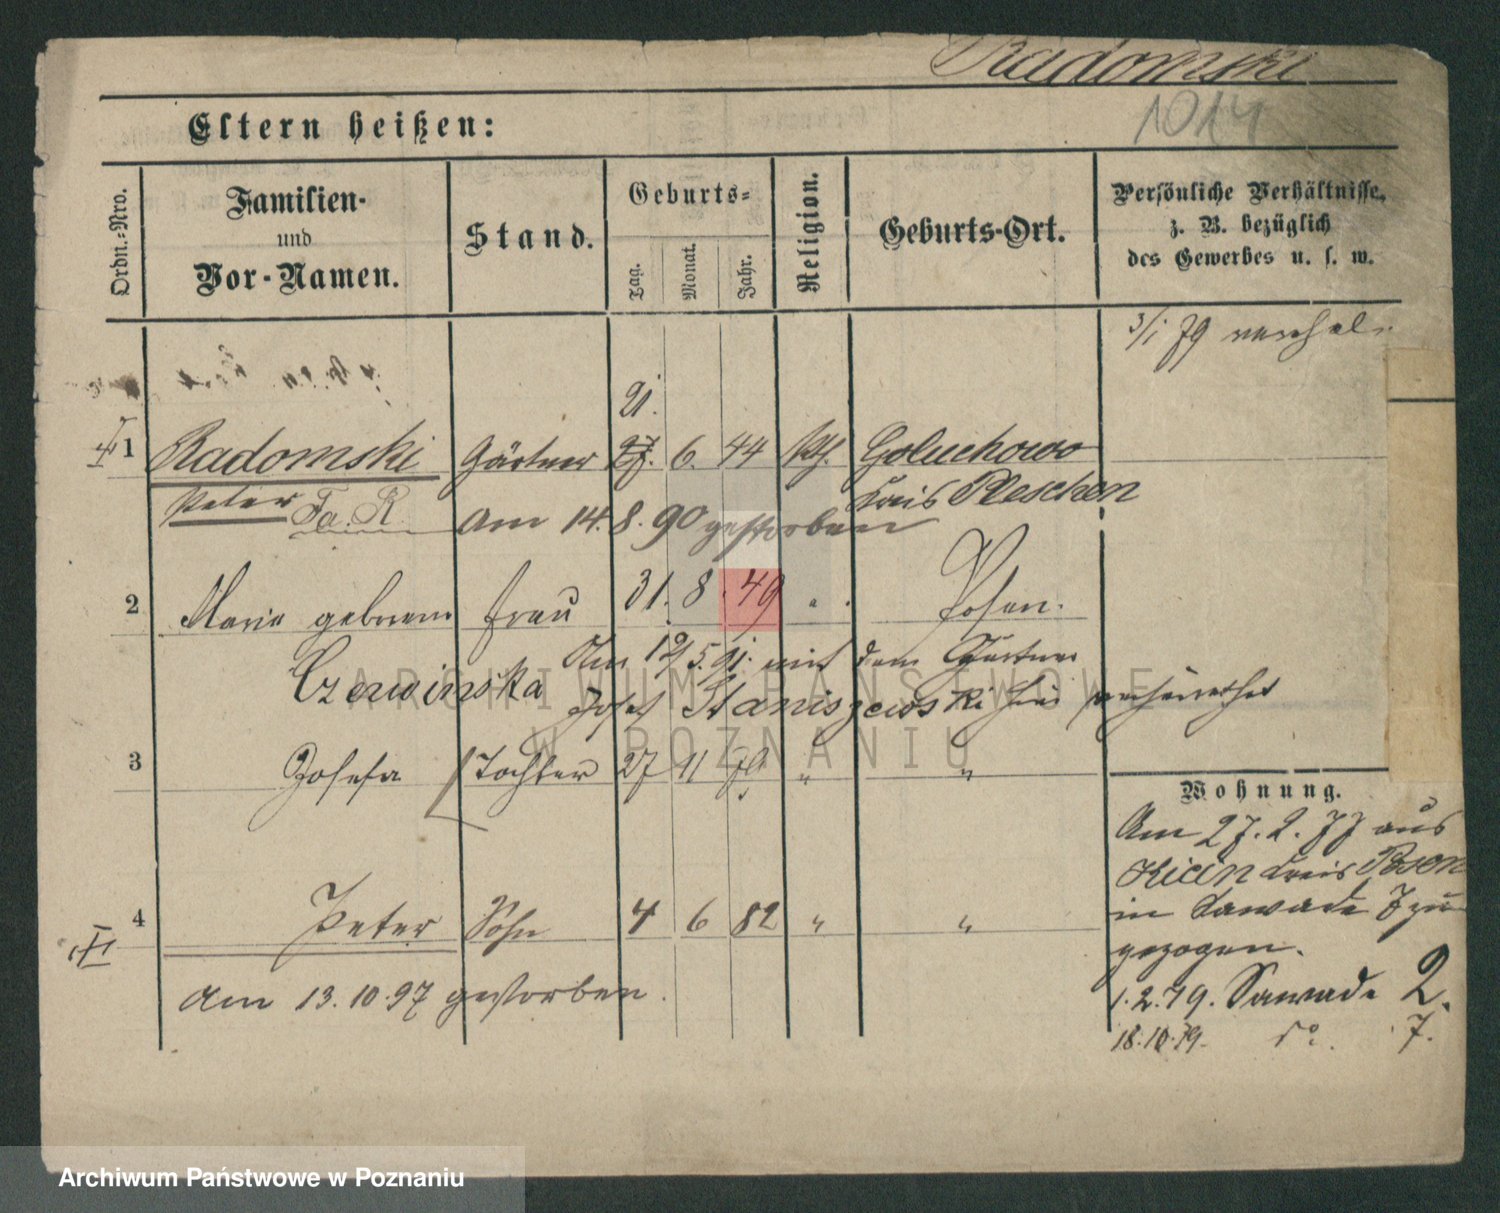 Radomski
1014
Eltern heißen:
Ordn.-Nro.
Familien-
und
Vor-Namen.
Stand.
Geburts-
Tag.
Monat.
Jahr.
Religion.
Geburts-Ort.
Persönliche Verhältnisse,
z. B. bezüglich
des Gewerbes u. s. w.
3/1 79
21.
1 Radomski Gärtner 27. 6. 44 kth. Goluchowo
Peter Fa. R. Kreis Pleschen
Am 14. 8. 90 gestorben
2 Marie geborene Frau 31. 8. 49 " Posen.
Czerwinska
Am 19/5. 91. mit dem Gärtner
Josef Staniszewski hier verheirathet
3 Josefa Tochter 27 11 79 " "
4 Peter Sohn 4 6 82 " "
Am 13. 10. 97 gestorben.
Wohnung.
Am 27. 2. 77 aus
Kicin Kreis Posen
in Zawade 7 zu
gezogen.
1. 2. 79. Zawade 2.
18. 10. 79. do. 7.
ARCHIWUM PAŃSTWOWE
W POZNANIU
Archiwum Państwowe w Poznaniu